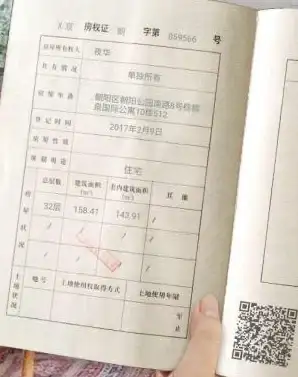 房权证 字第 869566 号
房屋所有权人 筱华
共有情况 单独所有
房屋坐落 朝阳区朝阳公园南路6号棕榈
泉国际公寓10楼512
登记时间 2017年2月9日
房屋性质
规划用途 住宅
房屋状况
总层数 建筑面积(m²) 套内建筑面积(m²) 其他
32层 158.41 143.91 /
/ / / /
/ / / /
土地状况
地号 土地使用权取得方式 土地使用年限
年
止